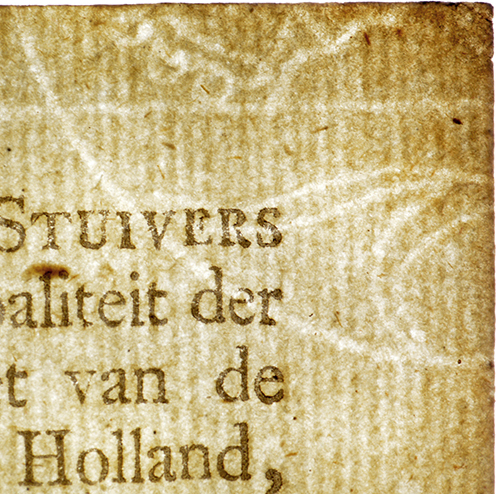 STUIVERS
aliteit der
t van de
Holland,